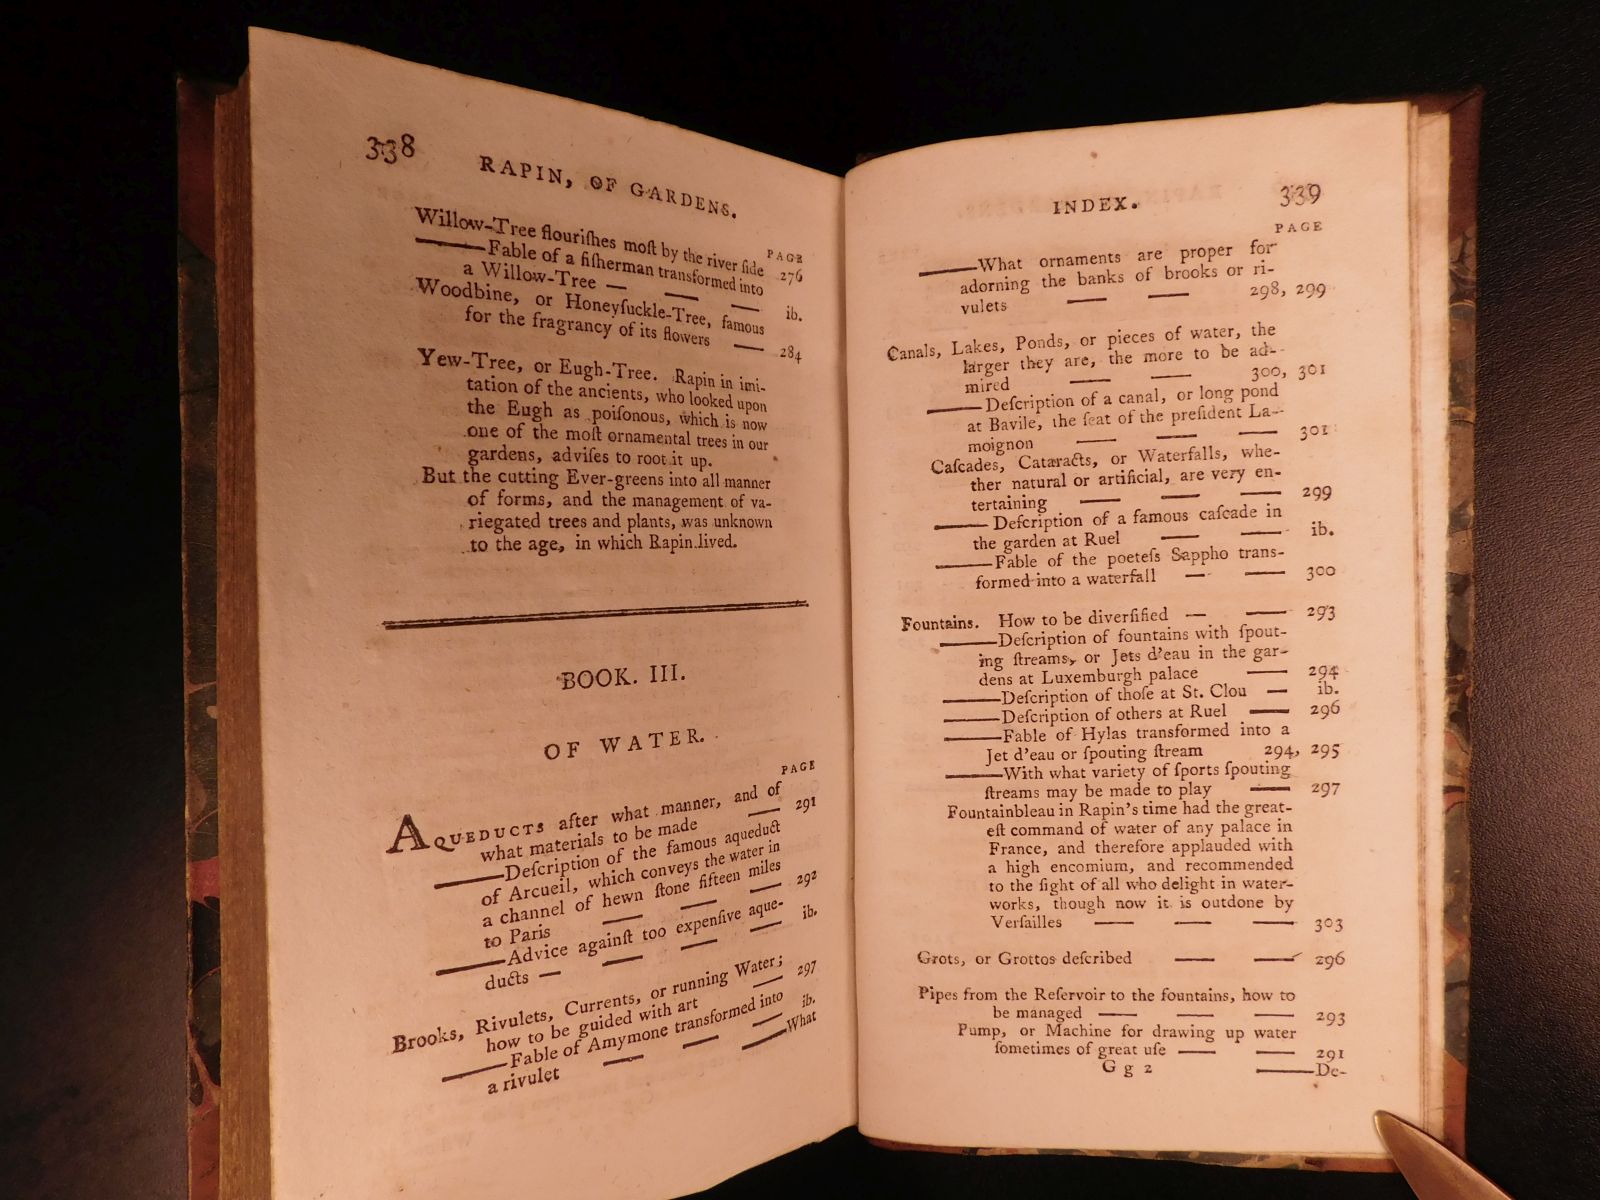 338
RAPIN, OF GARDENS.
PAGE
Willow-Tree flouriſhes moſt by the river ſide 276
——Fable of a fiſherman transformed into
a Willow-Tree — — — ib.
Woodbine, or Honeyſuckle-Tree, famous
for the fragrancy of its flowers — 284
Yew-Tree, or Eugh-Tree. Rapin in imi-
tation of the ancients, who looked upon
the Eugh as poiſonous, which is now
one of the moſt ornamental trees in our
gardens, adviſes to root it up.
But the cutting Ever-greens into all manner
of forms, and the management of va-
riegated trees and plants, was unknown
to the age, in which Rapin lived.
BOOK. III.
OF WATER.
PAGE
AQUEDUCTS after what manner, and of
what materials to be made — 291
——Deſcription of the famous aqueduct
of Arcueil, which conveys the water in
a channel of hewn ſtone fifteen miles
to Paris — — — 292
——Advice againſt too expenſive aque-
ducts — — — — ib.
Brooks, Rivulets, Currents, or running Water;
how to be guided with art — 297
——Fable of Amymone transformed into
a rivulet — — — ib.
——What
INDEX.
339
PAGE
——What ornaments are proper for
adorning the banks of brooks or ri-
vulets — — 298, 299
Canals, Lakes, Ponds, or pieces of water, the
larger they are, the more to be ad-
mired — — 300, 301
——Deſcription of a canal, or long pond
at Bavile, the ſeat of the preſident La-
moignon — — — 301
Caſcades, Cataracts, or Waterfalls, whe-
ther natural or artificial, are very en-
tertaining — — — 299
——Deſcription of a famous caſcade in
the garden at Ruel — — ib.
——Fable of the poeteſs Sappho trans-
formed into a waterfall — — 300
Fountains. How to be diverſified — — 293
——Deſcription of fountains with ſpout-
ing ſtreams, or Jets d'eau in the gar-
dens at Luxemburgh palace — 294
——Deſcription of thoſe at St. Clou — ib.
——Deſcription of others at Ruel — 296
——Fable of Hylas transformed into a
Jet d'eau or ſpouting ſtream 294, 295
——With what variety of ſports ſpouting
ſtreams may be made to play — 297
Fountainbleau in Rapin's time had the great-
eſt command of water of any palace in
France, and therefore applauded with
a high encomium, and recommended
to the ſight of all who delight in water-
works, though now it is outdone by
Verſailles — — — 303
Grots, or Grottos deſcribed — — 296
Pipes from the Reſervoir to the fountains, how to
be managed — — — 293
Pump, or Machine for drawing up water
ſometimes of great uſe — — 291
G g 2
——De-